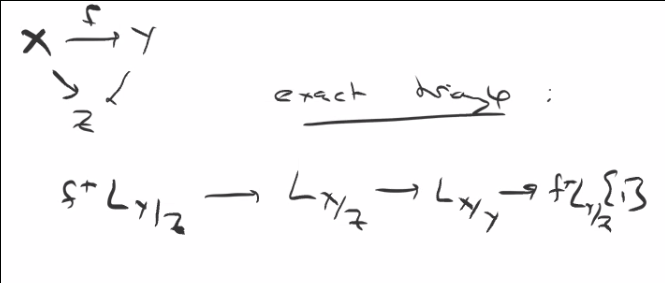 f
X → Y
Z
exact triangle :
f* L_{Y/Z} → L_{X/Z} → L_{X/Y} → f* L_{Y/Z} [1]